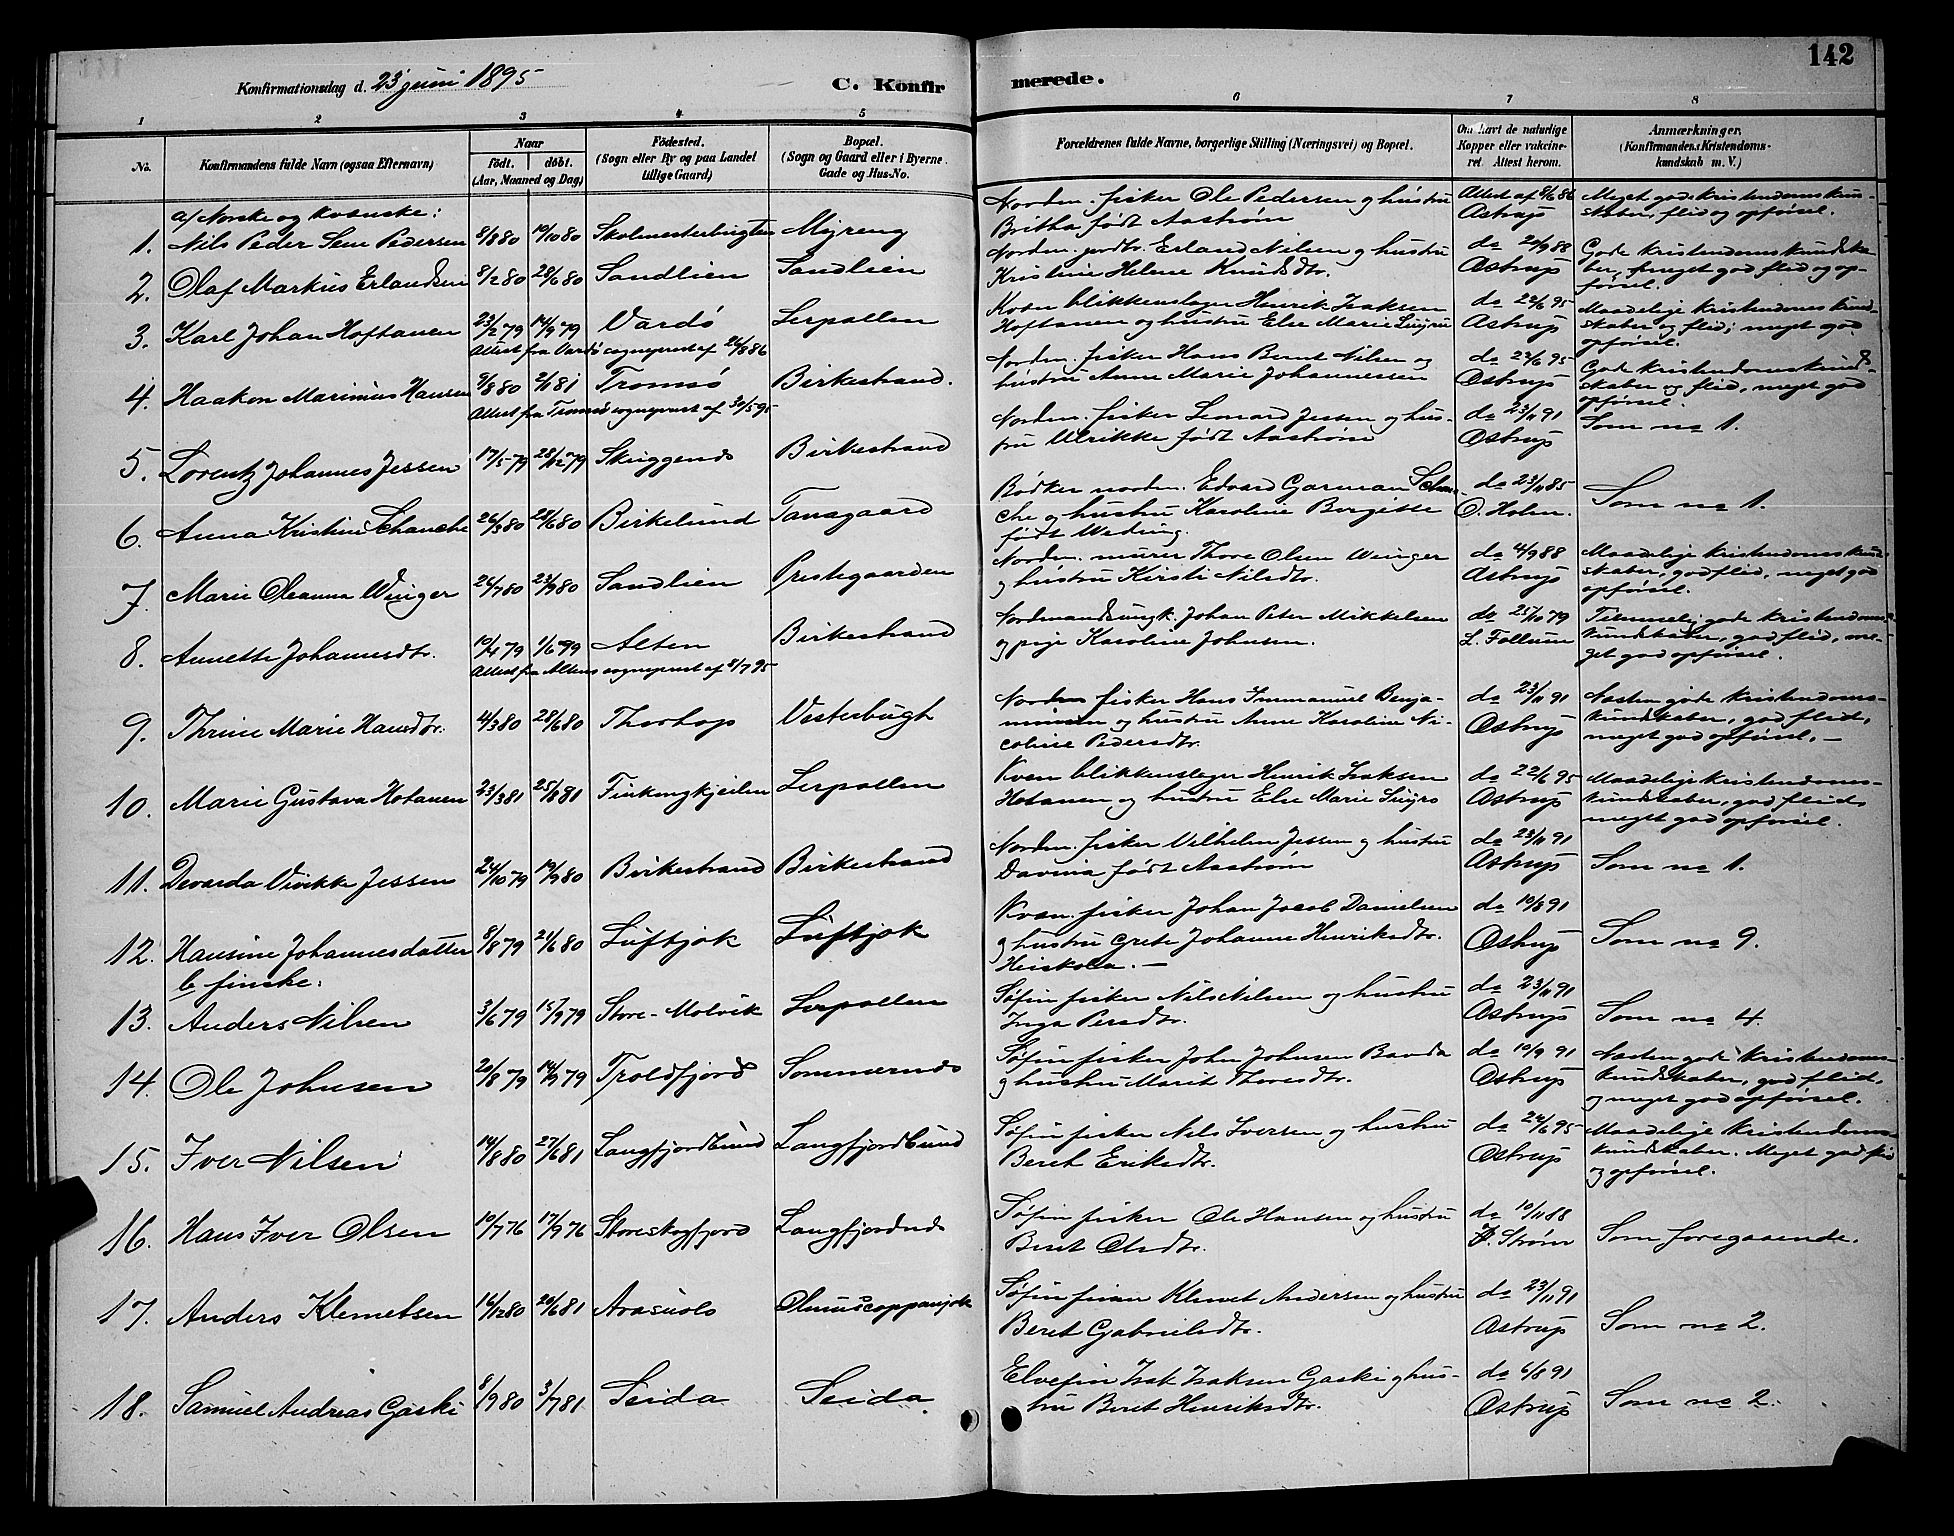 142
Konfirmationsdag d. 23 juni 1895
C. Konfirmerede.
1 2 3 4 5 6 7 8
No.
Konfirmandens fulde Navn (ogsaa Efternavn)
Naar
født. døbt.
(Aar, Maaned og Dag)
Fødested.
(Sogn eller By og paa Landet
tillige Gaard)
Bopæl.
(Sogn og Gaard eller i Byerne
Gade og Hus-No.
Forældrenes fulde Navne, borgerlige Stilling (Næringsvei) og Bopæl.
Om havt de naturlige
Kopper eller vakcine-
ret. Attest herom.
Anmærkninger,
(Konfirmandens Kristendoms-
kundskab m. V.)
a/ Norske og kvænske:
1. Nils Peder Sene Pedersen 8/8 80 19/10 80 Skolmesterbugten Myreng
Nordm. fisker Ole Pedersen og hustru
Britha født Aastrøm
Attest af 8/2 86
Astrup
Meget gode kristendomskun-
skaber, flid og opførsel.
2. Olaf Markus Erlandsen 8/2 80 28/6 80 Sandlien Sandlien
Nordm. jordbr. Erland Nilsen og hustru
Kristine Helene Knudsdtr.
do 20/9 88
Astrup
Gode kristendomskundska-
ber, meget god flid og op-
førsel.
3. Karl Johan Hoftanen 23/2 79 14/9 79 Vardø Lerpollen
Attest fra Vardø sogneprest af 24/8 86
Kvæn blikkenslager Henrik Isaksen
Hoftanen og hustru Else Marie
do 22/6 95
Astrup
Maadelige kristendomskund-
skaber og flid; meget god
opførsel.
4. Haakon Marinius Hansen 9/8 80 2/1 81 Tromsø Birkestrand.
Attest fra Tromsø sogneprest af 30/5 95
Nordm. fisker Hans Bernt Nilsen og
hustru Anne Marie Johannessen
do 23/6 95
Astrup
Gode kristendomskund-
skaber og flid, meget god
opførsel.
5. Lorentz Johannes Jessen 17/5 79 28/12 79 Birkestrand
Nordm. fisker Leonard Jessen og hus-
tru Ulrikke født Aastrøm
do 23/11 91
Astrup
Som no 1.
6. Anna Kristine Schanche 26/3 80 27/6 80 Birkelund Tanagaard
Bødker nordm. Edvard Garman Schan-
che og hustru Karoline Bergitte
født Weding.
do 23/11 85
O. Holm.
Som no 1.
7. Marie Oleanna Winger 24/7 80 23/9 80 Sandlien Prestegaarden
Nordm. murer Thore Olsen Winger
og hustru Kirsti Nilsdtr.
do 4/9 88
Astrup
Maadelige kristendomskund-
skaber, god flid, meget god
opførsel.
8. Annette Johannesdtr. 19/4 79 1/6 79 Alten Birkestrand
Attest fra Altens sogneprest af 8/7 95
Nordmandsungk. Johan Peter Mikkelsen
og pige Karoline Johnsen.
do 25/10 79
L. Follum
Temmelig gode kristendoms-
kundskaber, god flid, me-
get god opførsel.
9. Thrine Marie Hansdtr. 4/3 80 28/6 80 Thorhop Vesterbugt
Nordm fisker Hans Immanuel Benja-
minsen og hustru Anne Karoline Ni-
coline Pedersdtr.
do 23/11 91
Astrup
Næsten gode kristendoms-
kundskaber, god flid,
meget god opførsel. —
10. Marie Gustava Hotanen 23/3 81 25/8 81 Finkongkjeilen Lerpollen
Kvæn blikkenslager Henrik Isaksen
Hotanen og hustru Else Marie
do 22/6 95
Astrup
Maadelige kristendoms-
kundskaber, god flid,
meget god opførsel.
11. Devarda Vivikke Jessen 24/10 79 19/9 80 Birkestrand Birkestrand
Nordm. fisker Vilhelm Jessen og hustru
Davina født Aastrøm
do 23/11 91
Astrup
Som no 1.
12. Hansine Johannesdatter 8/8 79 21/6 80 Luftjok Luftjok
Kvæn. fisker Johan Jacob Danielsen
og hustru Grete Johanne Henriksdtr.
Heiskola. —
do 19/8 91
Astrup
Som no 9.
b finske:
13. Anders Nilsen 3/6 79 15/9 79 Store-Molvik Lerpollen
Søfin fisker Nils Nilsen og hustru
Inga Persdtr.
do 23/11 91
Astrup
Som no 4.
14. Ole Johnsen 20/8 79 14/9 79 Troldfjord Sommernes
Søfin fisker John Johnsen Banda
og hustru Marit Thoresdtr.
do 10/9 91
Astrup
Næsten gode kristendoms-
kundskaber, god flid,
og meget god opførsel.
15. Iver Nilsen 14/8 80 27/6 81 Langfjordbund Langfjordbund
Søfin fisker Nils Iversen og hustru
Beret Eriksdtr.
do 22/6 95
Astrup
Maadelige kristendoms-
kundskaber. Meget god flid
og opførsel.
16. Hans Iver Olsen 10/7 76 17/9 76 Storeskogfjord Langfjordnes
Søfin fisker Ole Hansen og hustru
Beret Olsdtr.
do 10/11 88
Strøm
Som foregaaende.
17. Anders Klemetsen 16/12 80 26/6 81 Avasuolo
Søfin Klemet Andersen og hustru
Beret Gabrielsdtr.
do 23/11 91
Astrup
Som no 2.
18. Samuel Andreas Gaski 8/9 80 3/7 81 Seida Seida.
Elvefin Isak Isaksen Gaski og hus-
tru Beret Henriksdtr.
do 6/8 91
Astrup
Som no 2.